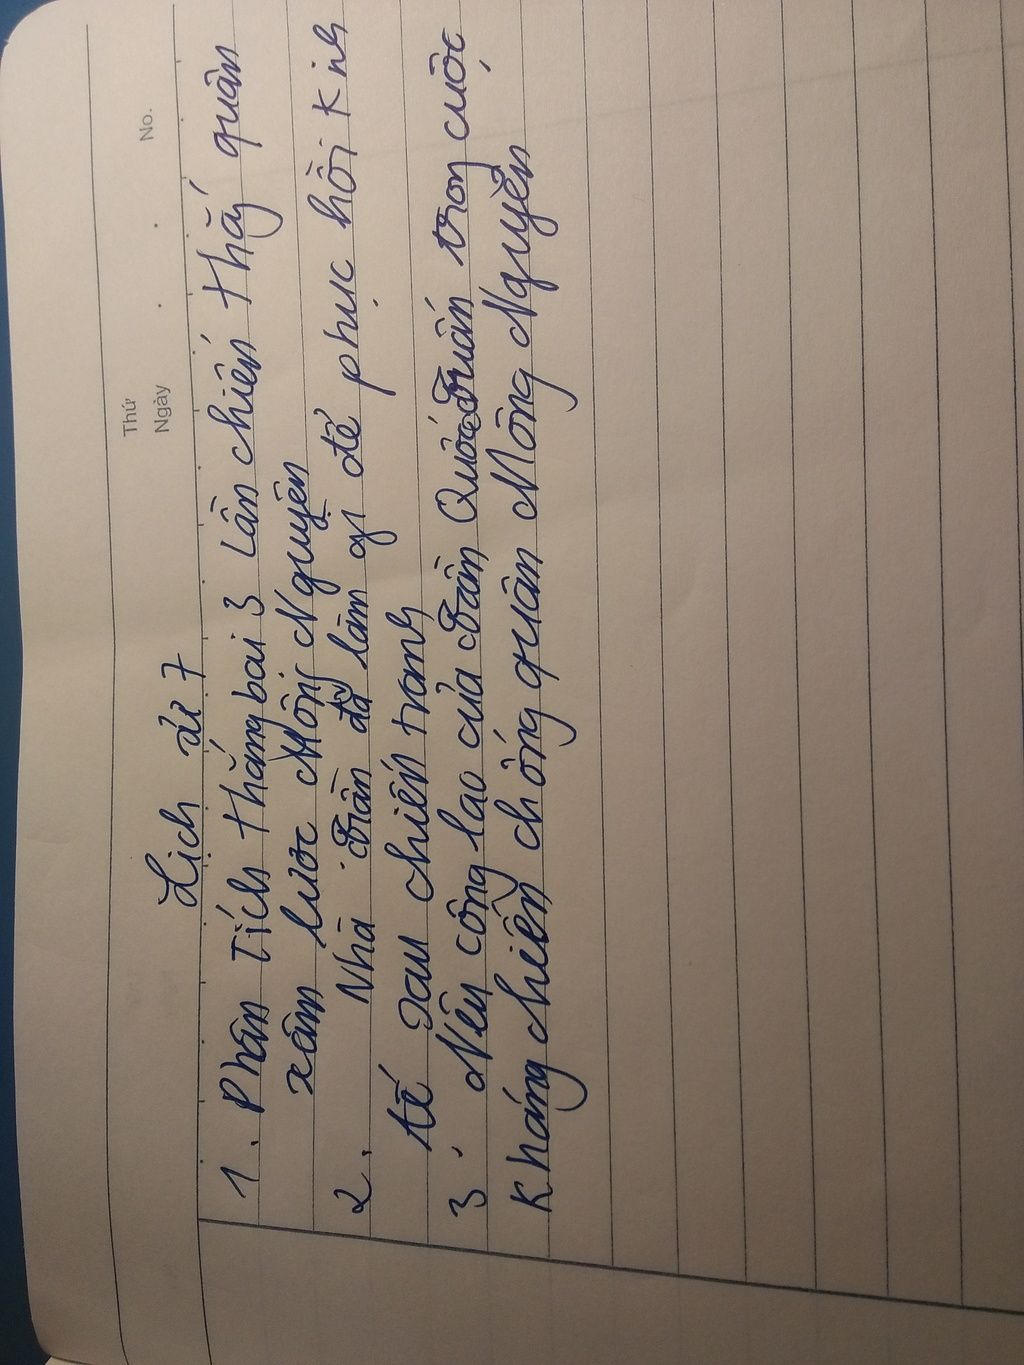 Thứ
Ngày
No.
Lịch sử 7
1. Phân Tích thắng bại 3 Lần chiến thắg quân
xâm lược Mông Nguyên
2. Nhà Trần đã làm gì để phục hồi Kinh
tế sau chiến tranh
3. Nêu công lao của Trần Quốc Tuấn trong cuộc
Kháng chiến chống quân Mông Nguyên